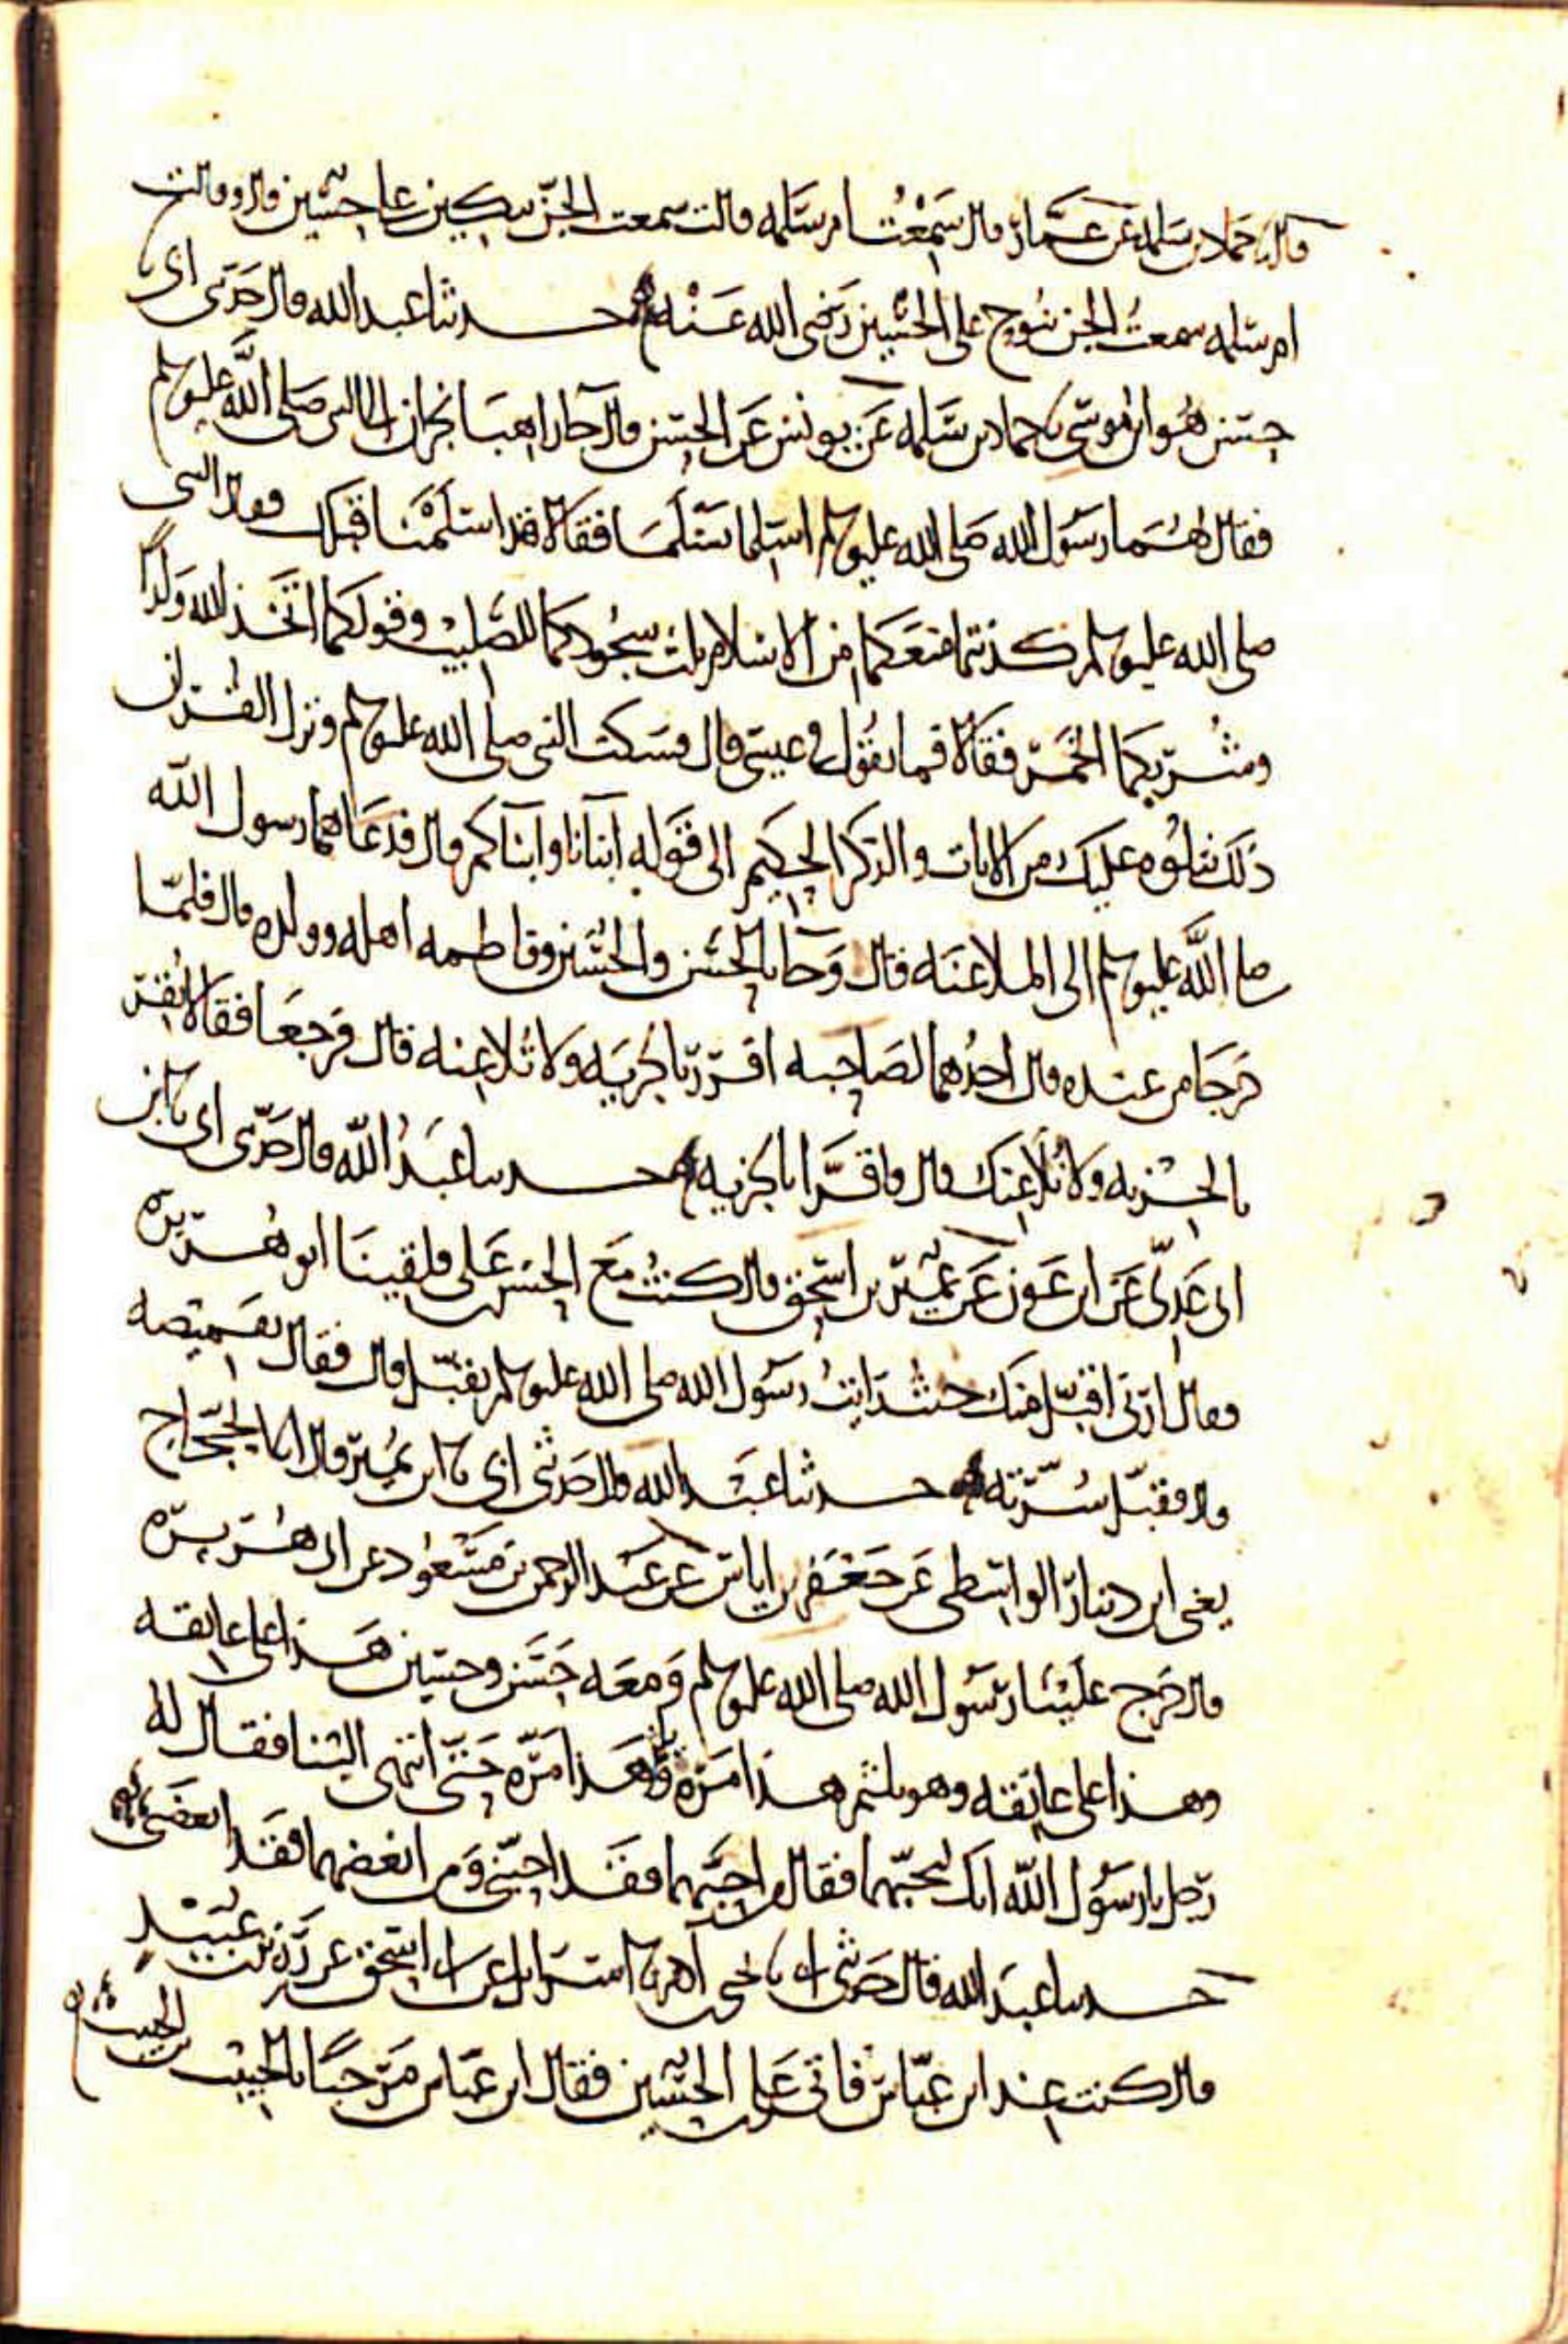 قال نا حماد بن سلمه عن عمار قال سمعت ام سلمه قالت سمعت الجن يبكين على حسين قال وقالت
ام سلمه سمعت الجن تنوح على الحسين رضى الله عنه حدثنا عبد الله قال حدثنى ابى نا
حسن هو ابن موسى نا حماد بن سلمه عن يونس عن الحسن قال جا راهبا نجران الى النبى صلى الله عليه وسلم
فقال لهما رسول الله صلى الله عليه وسلم اسلما تسلما فقالا قد اسلمنا قبلك فقال النبى
صلى الله عليه وسلم كذبتما منعكما من الاسلام ثلث سجودكما للصليب وقولكما اتخذ الله ولدًا
وشربكما الخمر فقالا فما تقول فى عيسى قال فسكت النبى صلى الله عليه وسلم ونزل القران
ذلك نتلوه عليك من الايات والذكر الحكيم الى قوله ابنانا وابناكم قال فدعاهما رسول الله
صلى الله عليه وسلم الى الملاعنه قال وجا بالحسن والحسين وفاطمه اهله وولده قال فلما
خرجا من عنده قال احدهما لصاحبه اقرر بالجزيه ولا تلاعنه قال فرجعا فقالا نقر
بالجزيه ولا نلاعنك قال فاقرا بالجزيه حدثنا عبد الله قال حدثنى ابى نا ابن
ابى عدى عن ابن عون عن عمير بن اسحق قال كنت مع الحسن بن على فلقينا ابو هريره
فقال ارنى اقبل منك حيث رايت رسول الله صلى الله عليه وسلم يقبل قال فقال بقميصه
قال فقبل سرته حدثنا عبد الله قال حدثنى ابى نا ابن نمير قال انا الحجاج
يعنى ابن دينار الواسطى عن جعفر بن اياس عن عبد الرحمن بن مسعود عن ابى هريره
قال خرج علينا رسول الله صلى الله عليه وسلم ومعه حسن وحسين هذا على عاتقه
وهذا على عاتقه وهو يلثم هذا مره وهذا مره حتى انتهى الينا فقال له
رجل يا رسول الله انك لتحبهما فقال من احبهما فقد احبنى ومن ابغضهما فقد ابغضنى
حدثنا عبد الله قال حدثنى ابى نا يحيى بن ادم نا اسرايل عن ابى اسحق عن رزين بن عبيد
قال كنت عند ابن عباس فاتى على بن الحسين فقال ابن عباس مرحبًا بالحبيب بن الحبيب